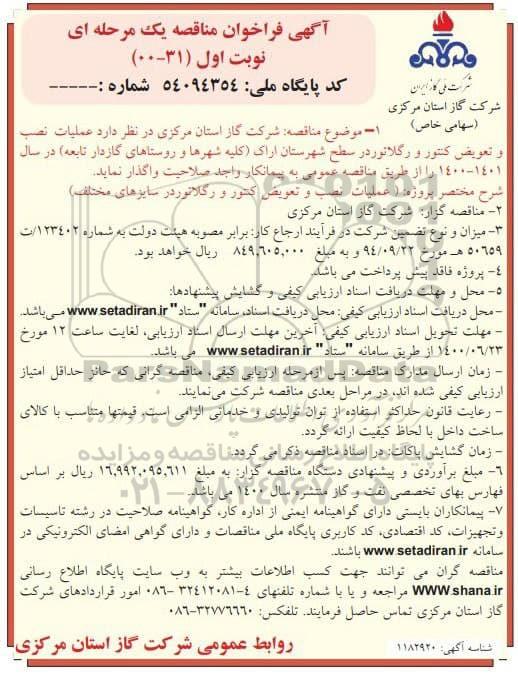 آگهی فراخوان مناقصه یک مرحله ای
نوبت اول (۳۱-۰۰)
کد پایگاه ملی: ۵۴۰۹۴۳۵۴ شماره :-----
شرکت ملی گاز ایران
شرکت گاز استان مرکزی
(سهامی خاص)
۱– موضوع مناقصه: شرکت گاز استان مرکزی در نظر دارد عملیات نصب
و تعویض کنتور و رگلاتوردر سطح شهرستان اراک (کلیه شهرها و روستاهای گازدار تابعه) در سال
۱۴۰۱-۱۴۰۰ را از طریق مناقصه عمومی به پیمانکار واجد صلاحیت واگذار نماید.
شرح مختصر پروژه:( عملیات نصب و تعویض کنتور و رگلاتوردر سایزهای مختلف)
۲– مناقصه گزار: شرکت گاز استان مرکزی
۳–میزان و نوع تضمین شرکت در فرآیند ارجاع کار: برابر مصوبه هیئت دولت به شماره ۱۲۳۴۰۲/ت
۵۰۶۵۹ هـ مورخ ۹۴/۰۹/۲۲ و به مبلغ ۸۴۹,۶۰۵,۰۰۰ ریال خواهد بود.
۴– پروژه فاقد پیش پرداخت می باشد.
۵– محل و مهلت دریافت اسناد ارزیابی کیفی و گشایش پیشنهادها:
– محل دریافت اسناد ارزیابی کیفی: محل دریافت اسناد، سامانه "ستاد" www.setadiran.ir می‌باشد.
– مهلت تحویل اسناد ارزیابی کیفی: آخرین مهلت ارسال اسناد ارزیابی، لغایت ساعت ۱۲ مورخ
۱۴۰۰/۰۶/۲۳ از طریق سامانه "ستاد" www.setadiran.ir می باشد.
– زمان ارسال مدارک مناقصه: پس ازمرحله ارزیابی کیفی، مناقصه گرانی که حائز حداقل امتیاز
ارزیابی کیفی شده اند، در مراحل بعدی مناقصه شرکت می‌نمایند.
– رعایت قانون حداکثر استفاده از توان تولیدی و خدماتی الزامی است. قیمتها متناسب با کالای
ساخت داخل با لحاظ کیفیت ارائه گردد.
– زمان گشایش پاکات: در اسناد مناقصه ذکر می گردد.
۶– مبلغ برآوردی و پیشنهادی دستگاه مناقصه گزار: به مبلغ ۱۶,۹۹۲,۰۹۵,۶۱۱ ریال بر اساس
فهارس بهای تخصصی نفت و گاز منتشره سال ۱۴۰۰ می باشد.
۷– پیمانکاران بایستی دارای گواهینامه ایمنی از اداره کار، گواهینامه صلاحیت در رشته تاسیسات
وتجهیزات، کد اقتصادی، کد کاربری پایگاه ملی مناقصات و دارای گواهی امضای الکترونیکی در
سامانه www.setadiran.ir باشند.
مناقصه گران می توانند جهت کسب اطلاعات بیشتر به وب سایت پایگاه اطلاع رسانی
WWW.shana.ir مراجعه و یا با شماره تلفنهای ۴-۳۲۴۱۲۰۸۱ -۰۸۶ امور قراردادهای شرکت
گاز استان مرکزی تماس حاصل فرمایند. تلفکس: ۳۲۷۷۶۶۶۰-۰۸۶
شناسه آگهی: ۱۱۸۲۹۲۰
روابط عمومی شرکت گاز استان مرکزی
ParsNamadData
پایگاه اطلاع رسانی مناقصه و مزایده
۰۲۱-۸۸۳۴۹۶۷۰-۵